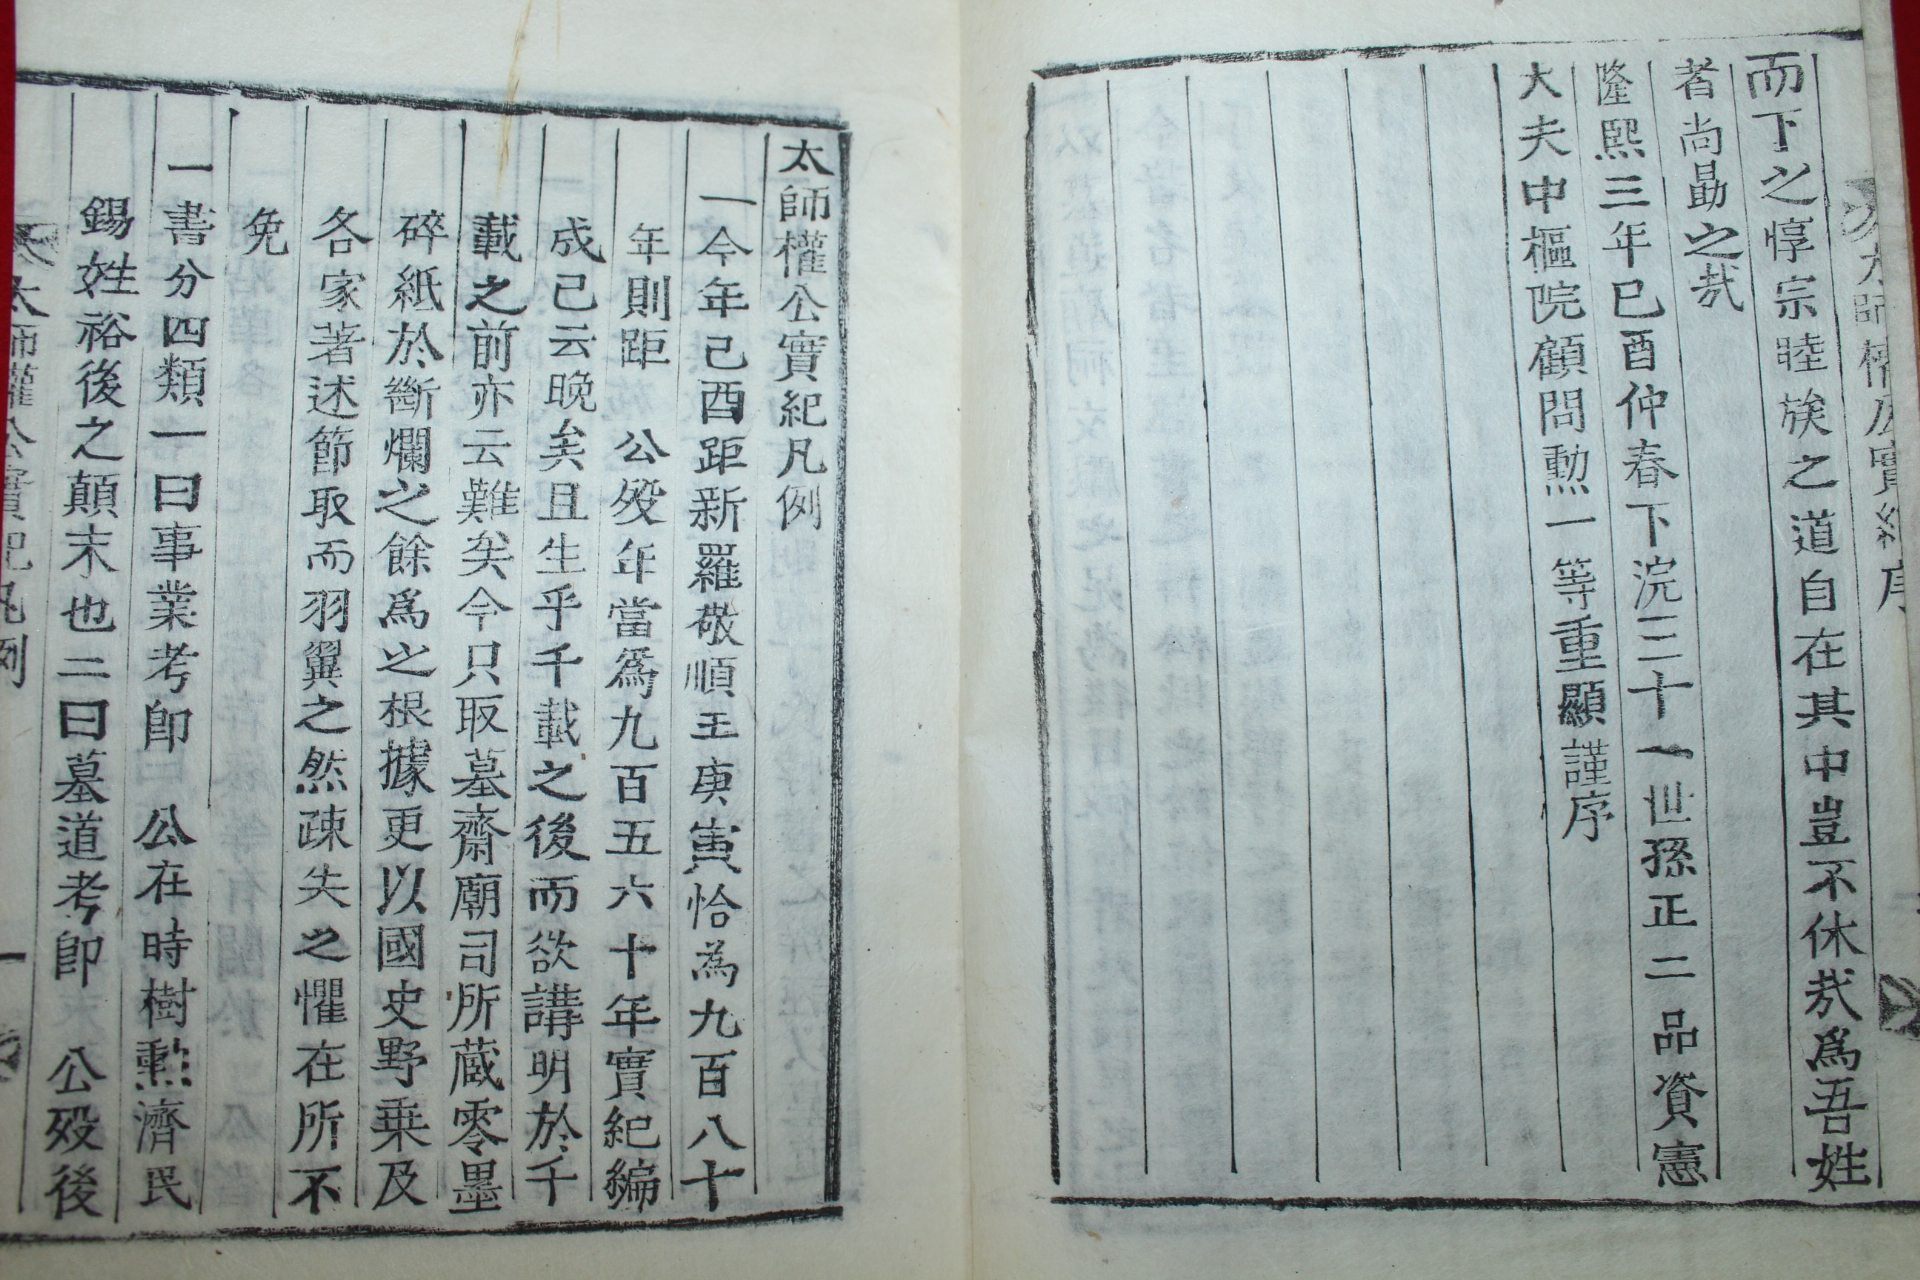 太師權公實紀序
而下之惇宗睦族之道自在其中豈不休哉爲吾姓
者尚勗之哉
隆熙三年己酉仲春下浣三十一世孫正二品資憲
大夫中樞院顧問勲一等重顯謹序
太師權公實紀凡例
一今年己酉距新羅敬順王庚寅恰為九百八十
年則距 公歿年當爲九百五六十年實紀編
成已云晩矣且生乎千載之後而欲講明於千
載之前亦云難矣今只取墓齋廟司所蔵零墨
碎紙於斷爛之餘爲之根據更以國史野乗及
各家著述節取而羽翼之然疎失之懼在所不
免
一書分四類一曰事業考卽 公在時樹勲濟民
錫姓裕後之顛末也二曰墓道考卽 公歿後
太師權公實紀凡例 一